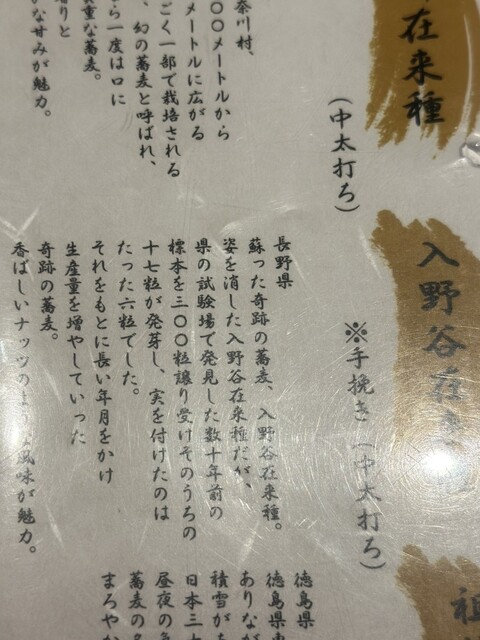 在来種
(中太打ち)
奈川村、
〇〇メートルから
メートルに広がる
ごく一部で栽培される
、幻の蕎麦と呼ばれ、
ら一度は口に
貴重な蕎麦。
香りと
かな甘みが魅力。
入野谷在来
※手挽き (中太打ち)
長野県
蘇った奇跡の蕎麦、入野谷在来種。
姿を消した入野谷在来種だが、
県の試験場で発見した数十年前の
標本を三〇〇粒譲り受けそのうちの
十七粒が発芽し、実を付けたのは
たった六粒でした。
それをもとに長い年月をかけ
生産量を増やしていった
奇跡の蕎麦。
香ばしいナッツのよ 風味が魅力。
祖
徳島県
徳島県
ありなが
積雪が
日本三大
昼夜の
蕎麦の
まろやか